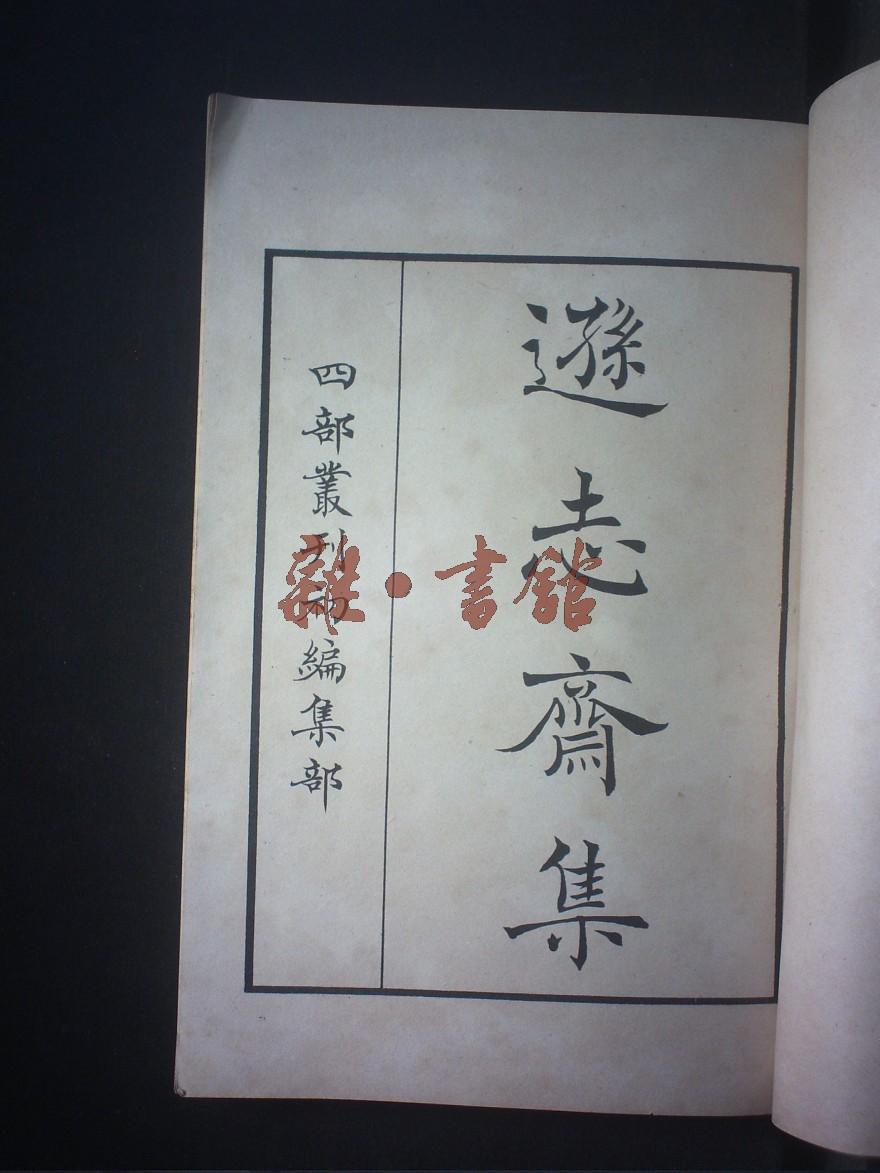 遜志齋集
四部叢刊初編集部
雜·書館